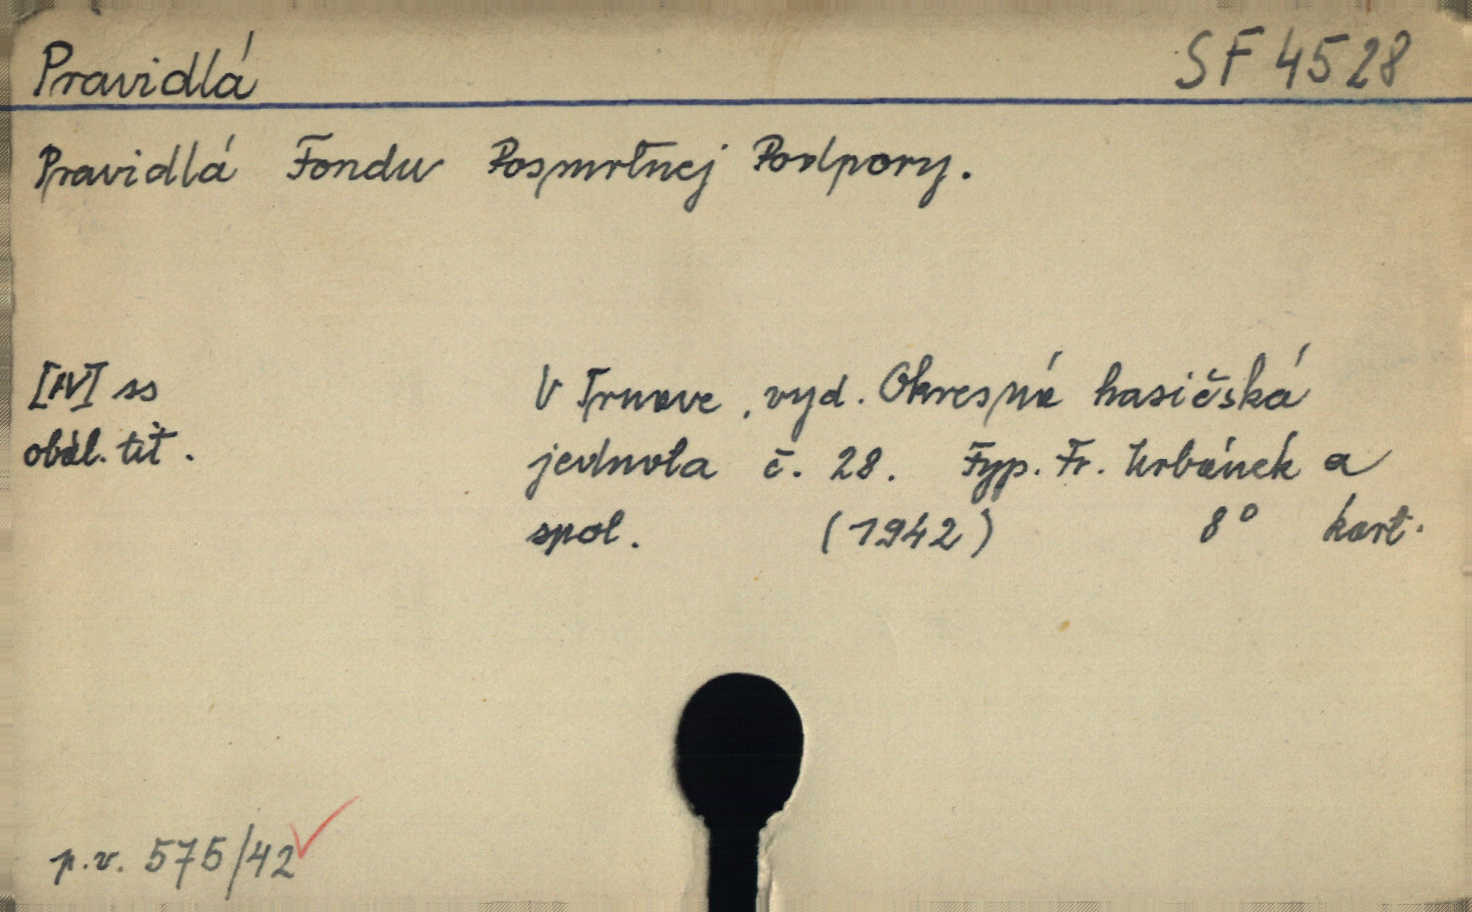 Pravidlá SF 4528
Pravidlá Fondu Posmrtnej Podpory.
[IV] ss V Trnave, vyd. Okresná hasičská
obál. tit. jednota č. 28. Typ. Fr. Urbánek a
spol. (1942) 8° kart.
p.v. 575/42